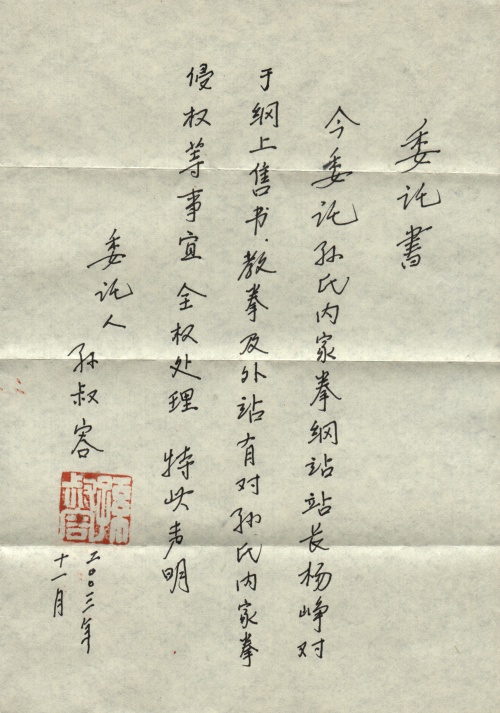 委托書
今委託孙氏内家拳網站站长杨峥对
于纲上售书.教拳及外站有对孙氏内家拳
侵权等事宜 全权处理 特此声明
委託人
孙叔容
孫叔容
二〇〇三年
十一月